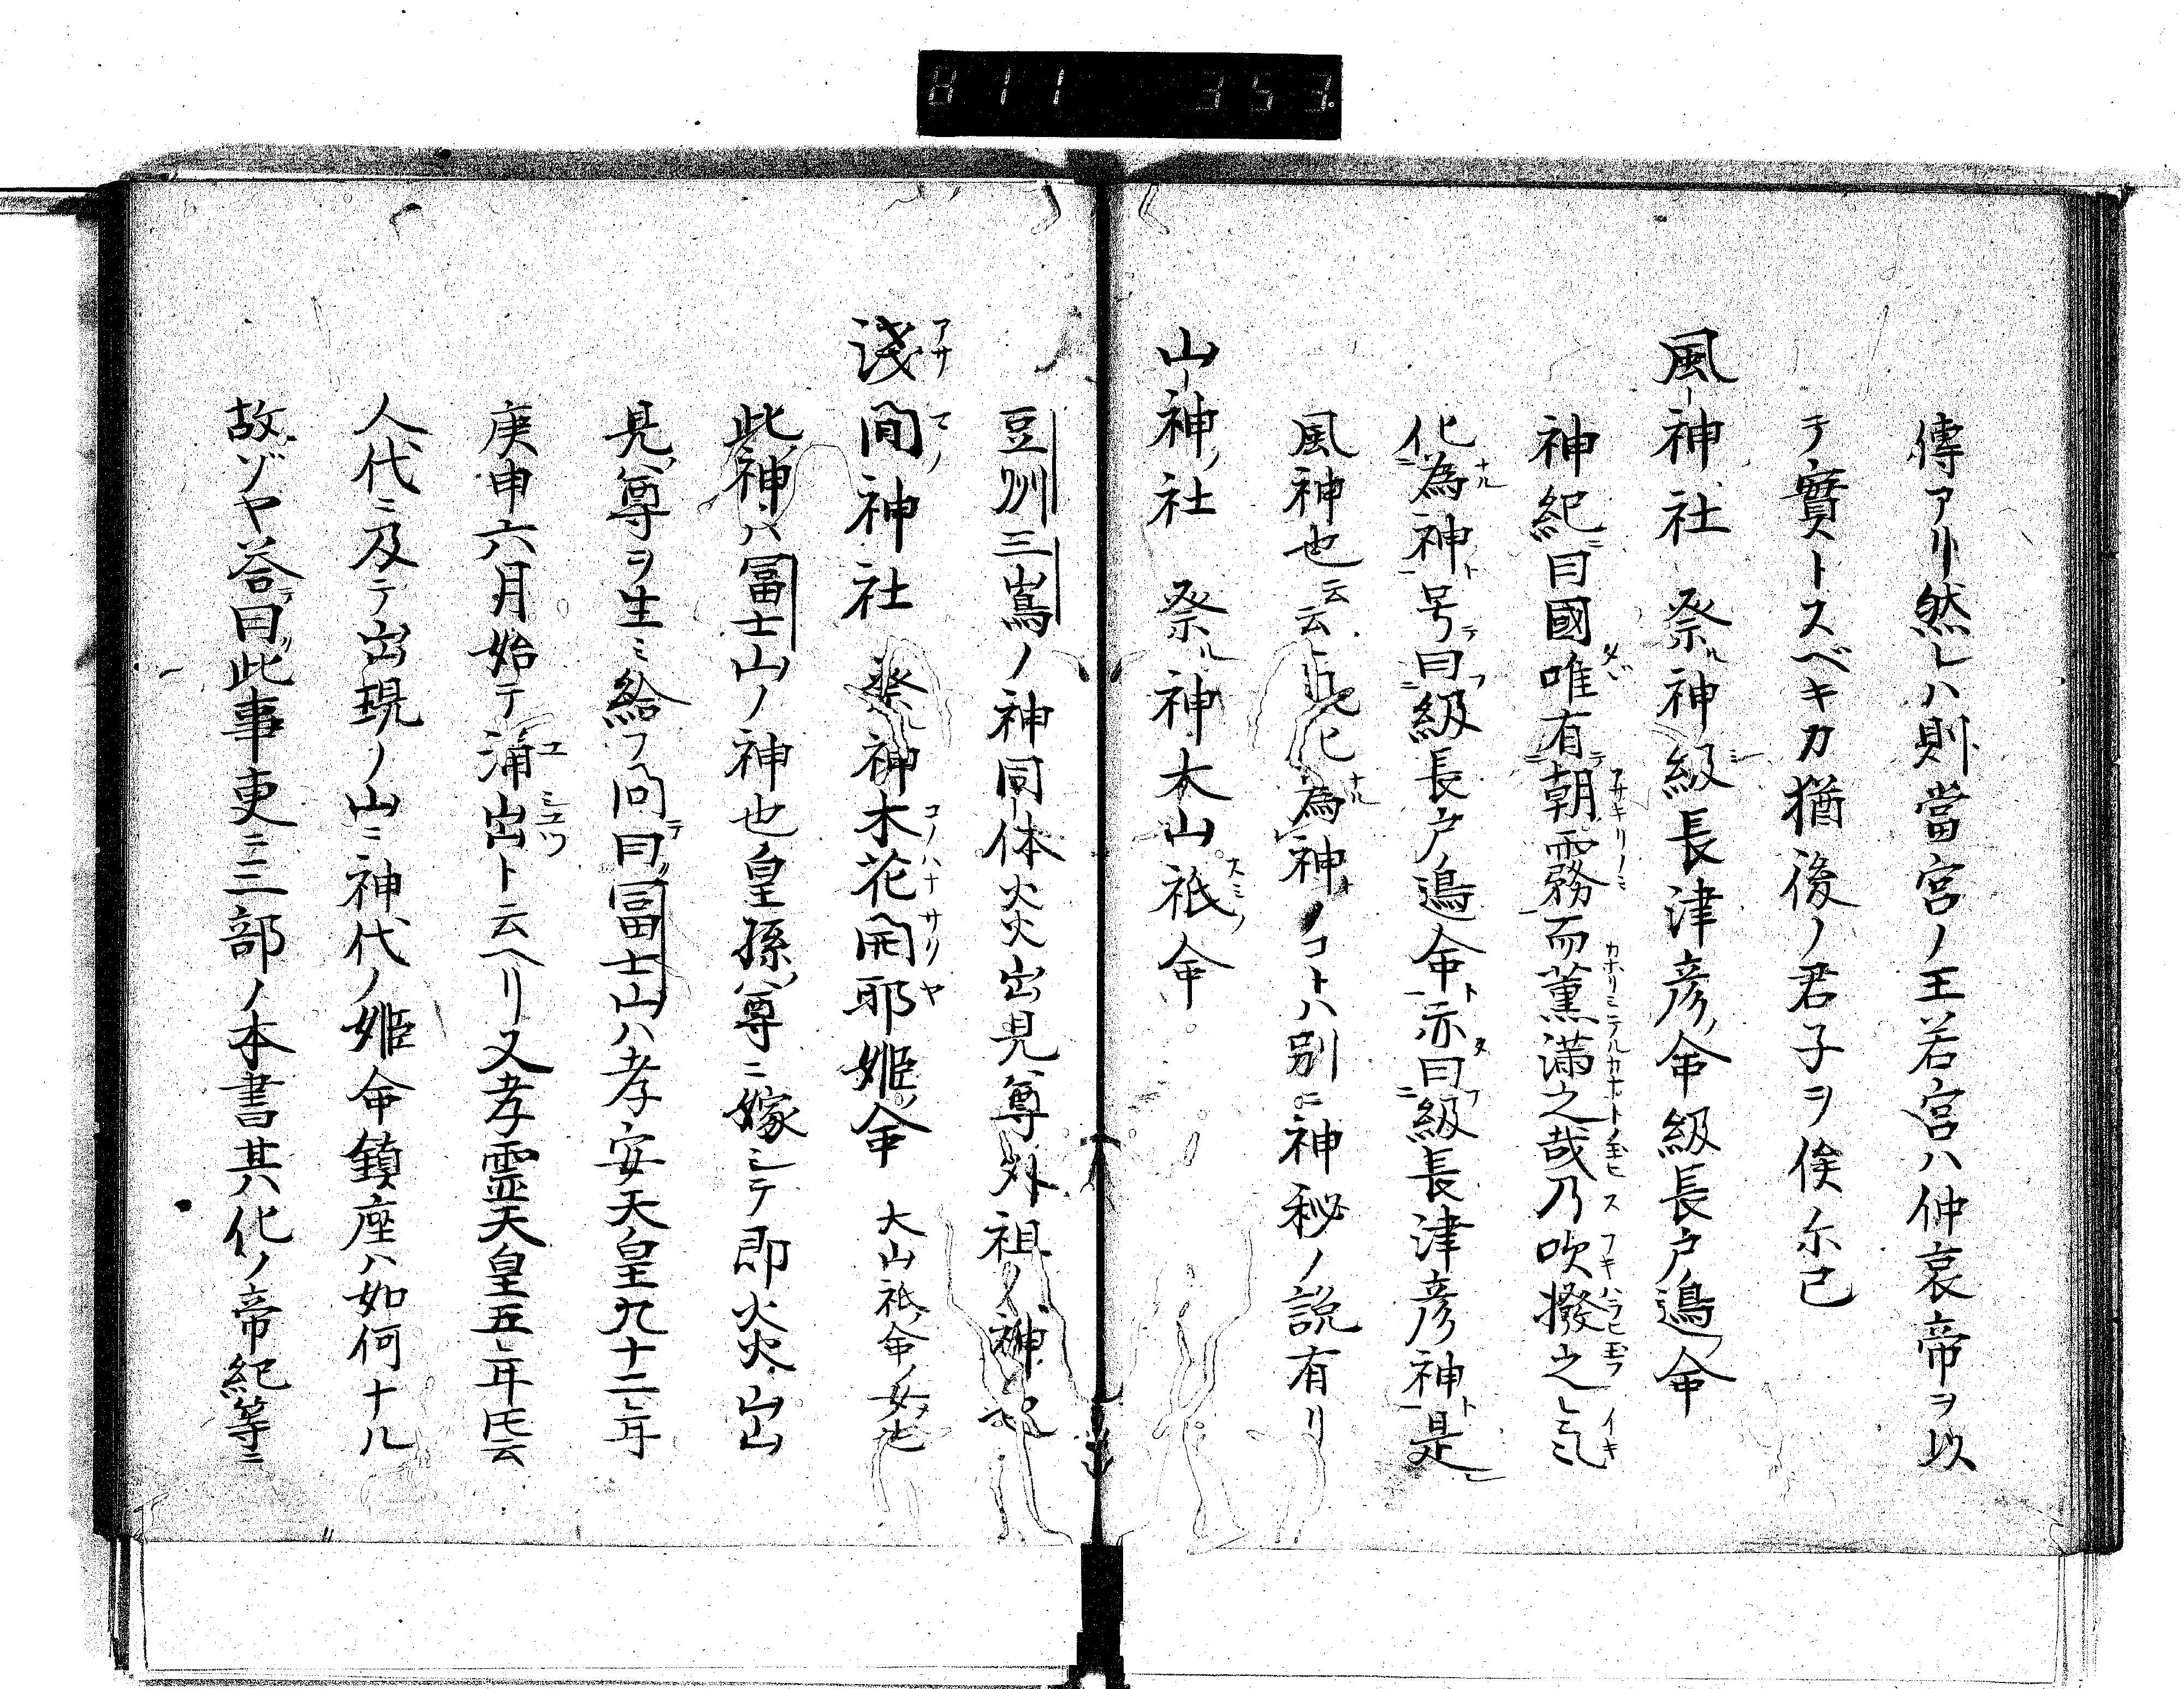 811 353
傳アリ然レハ則當宮ノ王若宮ハ仲哀帝ヲ以
テ實トスベキカ猶後ノ君子ヲ俟尓已
風神社 祭ル神級長津彦命級長戸邊命
神紀曰國唯有朝霧而薫滿之哉乃吹撥之気
化為神号曰級長戸邊命亦曰級長津彦神是
風神也云云此ニ為神ノコトハ別ニ神秘ノ説有リ
山神ノ社 祭ル神大山祇命
豆州三嶌ノ神同体火火出見尊外祖ノ神也
淺間神社 祭ル神木花開耶姫命 大山祇命ノ女也
此神ハ冨士山ノ神也皇孫尊ニ嫁シテ即火火出
見尊ヲ生ミ給フ問曰冨士山ハ孝安天皇九十二年
庚申六月始テ涌出ト云ヘリ又孝霊天皇五年氏云
人代ニ及テ出現ノ山ニ神代ノ姫命鎮座ハ如何ナル
故ゾヤ答曰此事吏ニ三部ノ本書其外化ノ帝紀等ニ